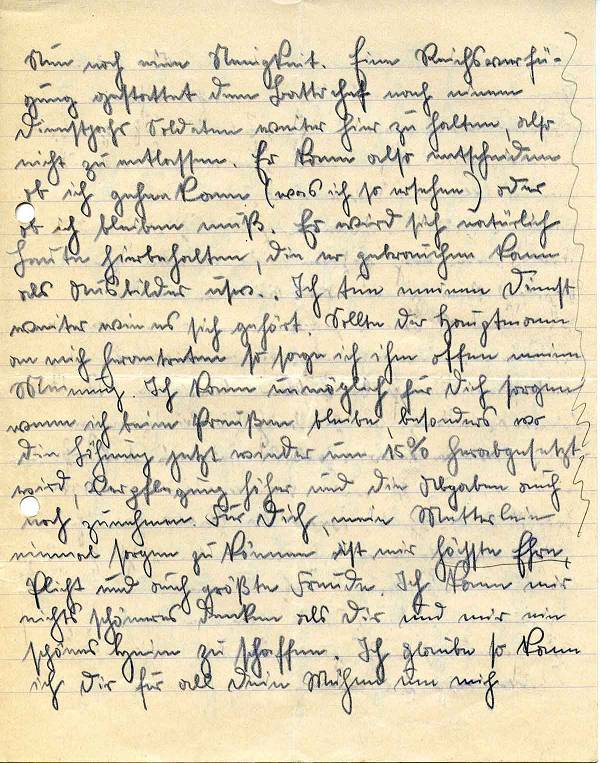 Nun noch eine Neuigkeit. Eine Reichsverfü-
gung gestattet dem Battrchef nach einem
Dienstjahr Soldaten weiter hier zu halten, also
nicht zu entlassen. Er kann also entscheiden
ob ich gehen kann (was ich so ersehen) oder
ob ich bleiben muß. Er wird sich natürlich
Leute hierbehalten, die er gebrauchen kann
als Ausbilder usw.. Ich tue meinen Dienst
weiter wie es sich gehört. Sollte der Hauptmann
an mich herantreten so sage ich ihm offen meine
Meinung. Ich kann unmöglich für Dich sorgen
wenn ich beim Preußen bleibe, besonders wo
die Löhnung jetzt wieder um 15% herabgesetzt
wird, Verpflegung höher und die Abgaben auch
noch zunehmen. Für Dich, mein Mutterlein
einmal sorgen zu können ist mir höchste Ehre,
Pflicht und auch größte Freude. Ich kann mir
nichts schöneres denken als Dir und mir ein
schönes Heim zu schaffen. Ich glaube so kann
ich Dir für all Dein Mühen um mich